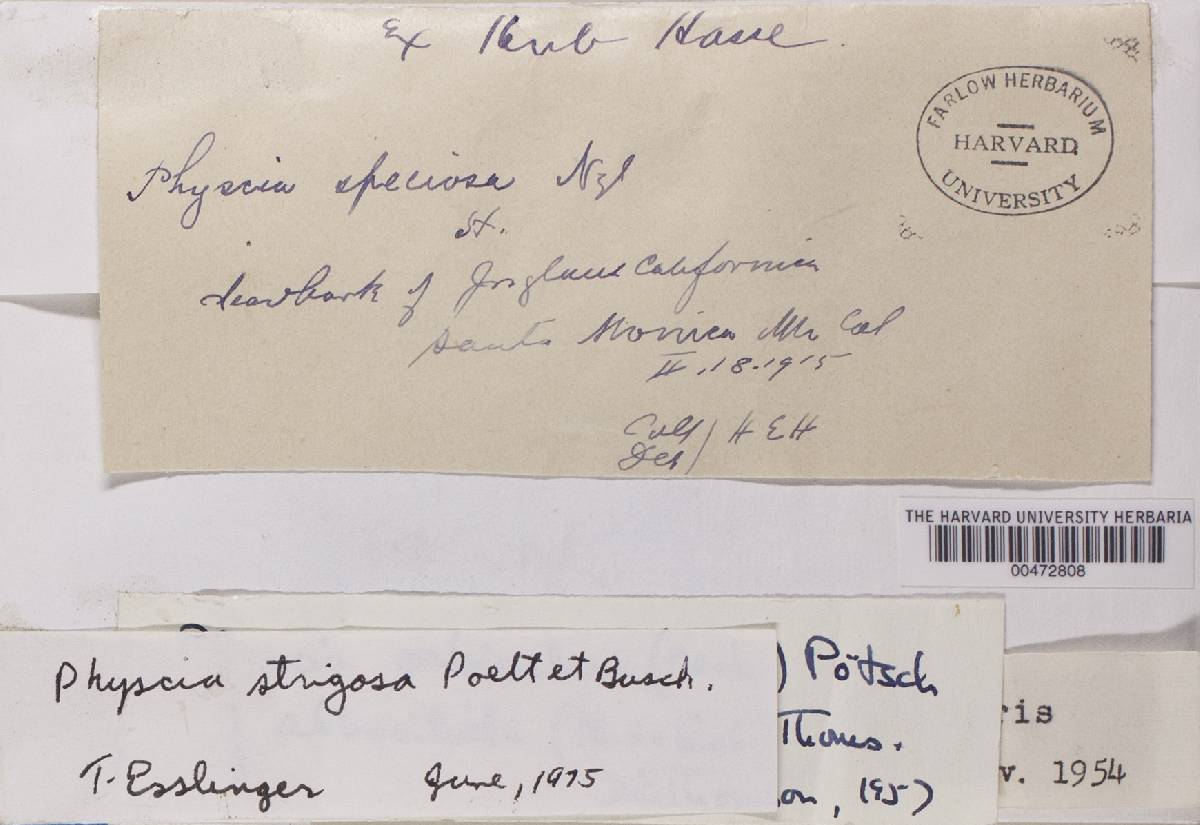 Ex Herb Hasse.
FARLOW HERBARIUM
HARVARD
UNIVERSITY
Physcia speciosa Nyl
st.
dead bark of Juglans Californica
Santa Monica Mts Cal
II.18.1915
Coll
Det / H E H
THE HARVARD UNIVERSITY HERBARIA
00472808
) Pötsch
Physcia strigosa Poelt et Busch.
Thoms.
ris
T. Esslinger June, 1975
on, 195)
v. 1954